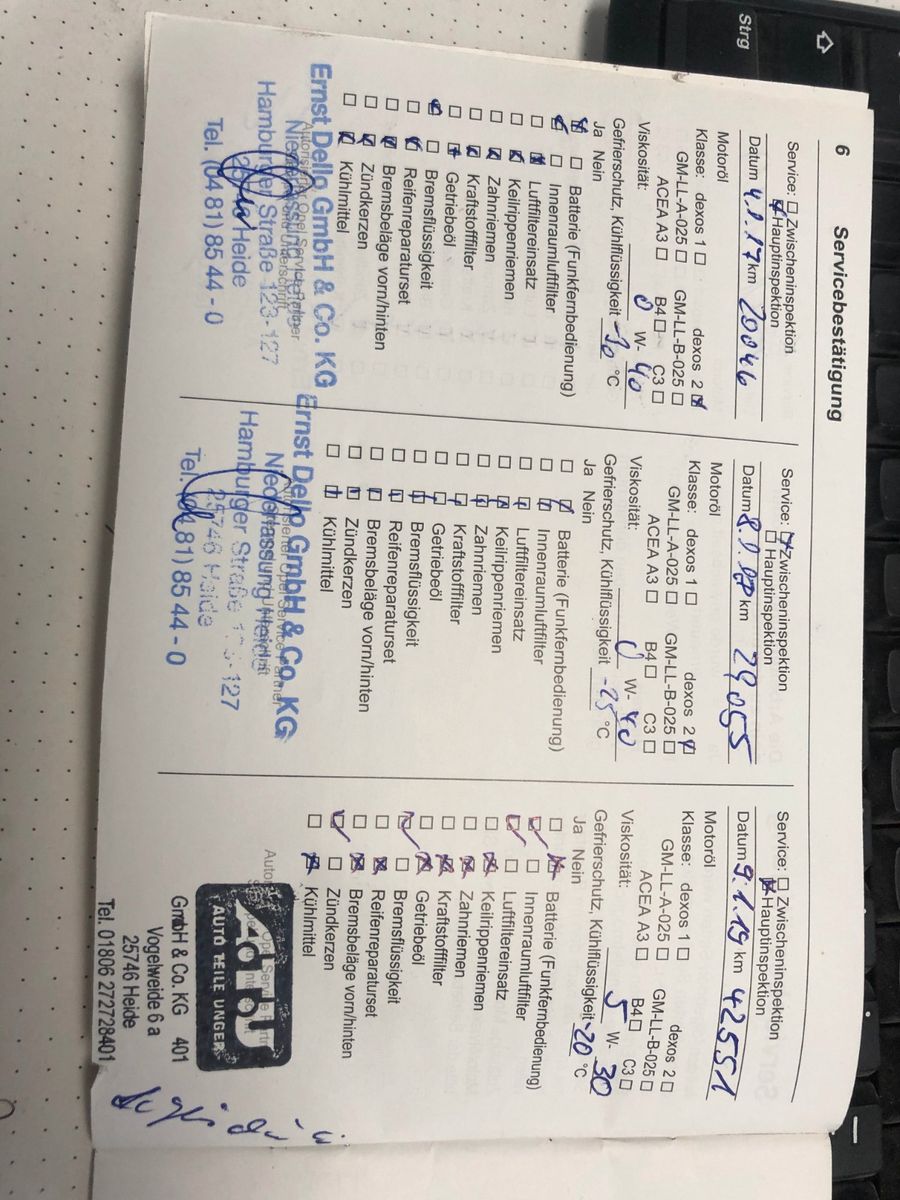 6 Servicebestätigung
Service: Zwischeninspektion
Hauptinspektion
Datum 4.1.17 km 20046
Motoröl
Klasse: dexos 1 dexos 2
GM-LL-A-025 GM-LL-B-025
ACEA A3 B4 C3
Viskosität: 0 W- 40
Gefrierschutz, Kühlflüssigkeit -30 °C
Ja Nein
Batterie (Funkfernbedienung)
Innenraumluftfilter
Luftfiltereinsatz
Keilrippenriemen
Zahnriemen
Kraftstofffilter
Getriebeöl
Bremsflüssigkeit
Reifenreparaturset
Bremsbeläge vorn/hinten
Zündkerzen
Kühlmittel
Ernst Dello GmbH & Co. KG
Hamburger Straße 123-127
Heide
Tel. (04 81) 85 44 - 0
Service: Zwischeninspektion
Hauptinspektion
Datum km 29055
Motoröl
Klasse: dexos 1 dexos 2
GM-LL-A-025 GM-LL-B-025
ACEA A3 B4 C3
Viskosität: 0 W- 40
Gefrierschutz, Kühlflüssigkeit -25 °C
Ja Nein
Batterie (Funkfernbedienung)
Innenraumluftfilter
Luftfiltereinsatz
Keilrippenriemen
Zahnriemen
Kraftstofffilter
Getriebeöl
Bremsflüssigkeit
Reifenreparaturset
Bremsbeläge vorn/hinten
Zündkerzen
Kühlmittel
Ernst Dello GmbH & Co. KG
Niederlassung Heide
Hamburger Straße 127
25746 Heide
Tel. 81) 85 44 - 0
Service: Zwischeninspektion
Hauptinspektion
Datum 9.1.19 km 42551
Motoröl
Klasse: dexos 1 dexos 2
GM-LL-A-025 GM-LL-B-025
ACEA A3 B4 C3
Viskosität: 5 W- 30
Gefrierschutz, Kühlflüssigkeit -20 °C
Ja Nein
Batterie (Funkfernbedienung)
Innenraumluftfilter
Luftfiltereinsatz
Keilrippenriemen
Zahnriemen
Kraftstofffilter
Getriebeöl
Bremsflüssigkeit
Reifenreparaturset
Bremsbeläge vorn/hinten
Zündkerzen
Kühlmittel
AUTO TEILE UNGER
GmbH & Co. KG 401
Vogelweide 6 a
25746 Heide
Tel. 01806 272728401
Strg